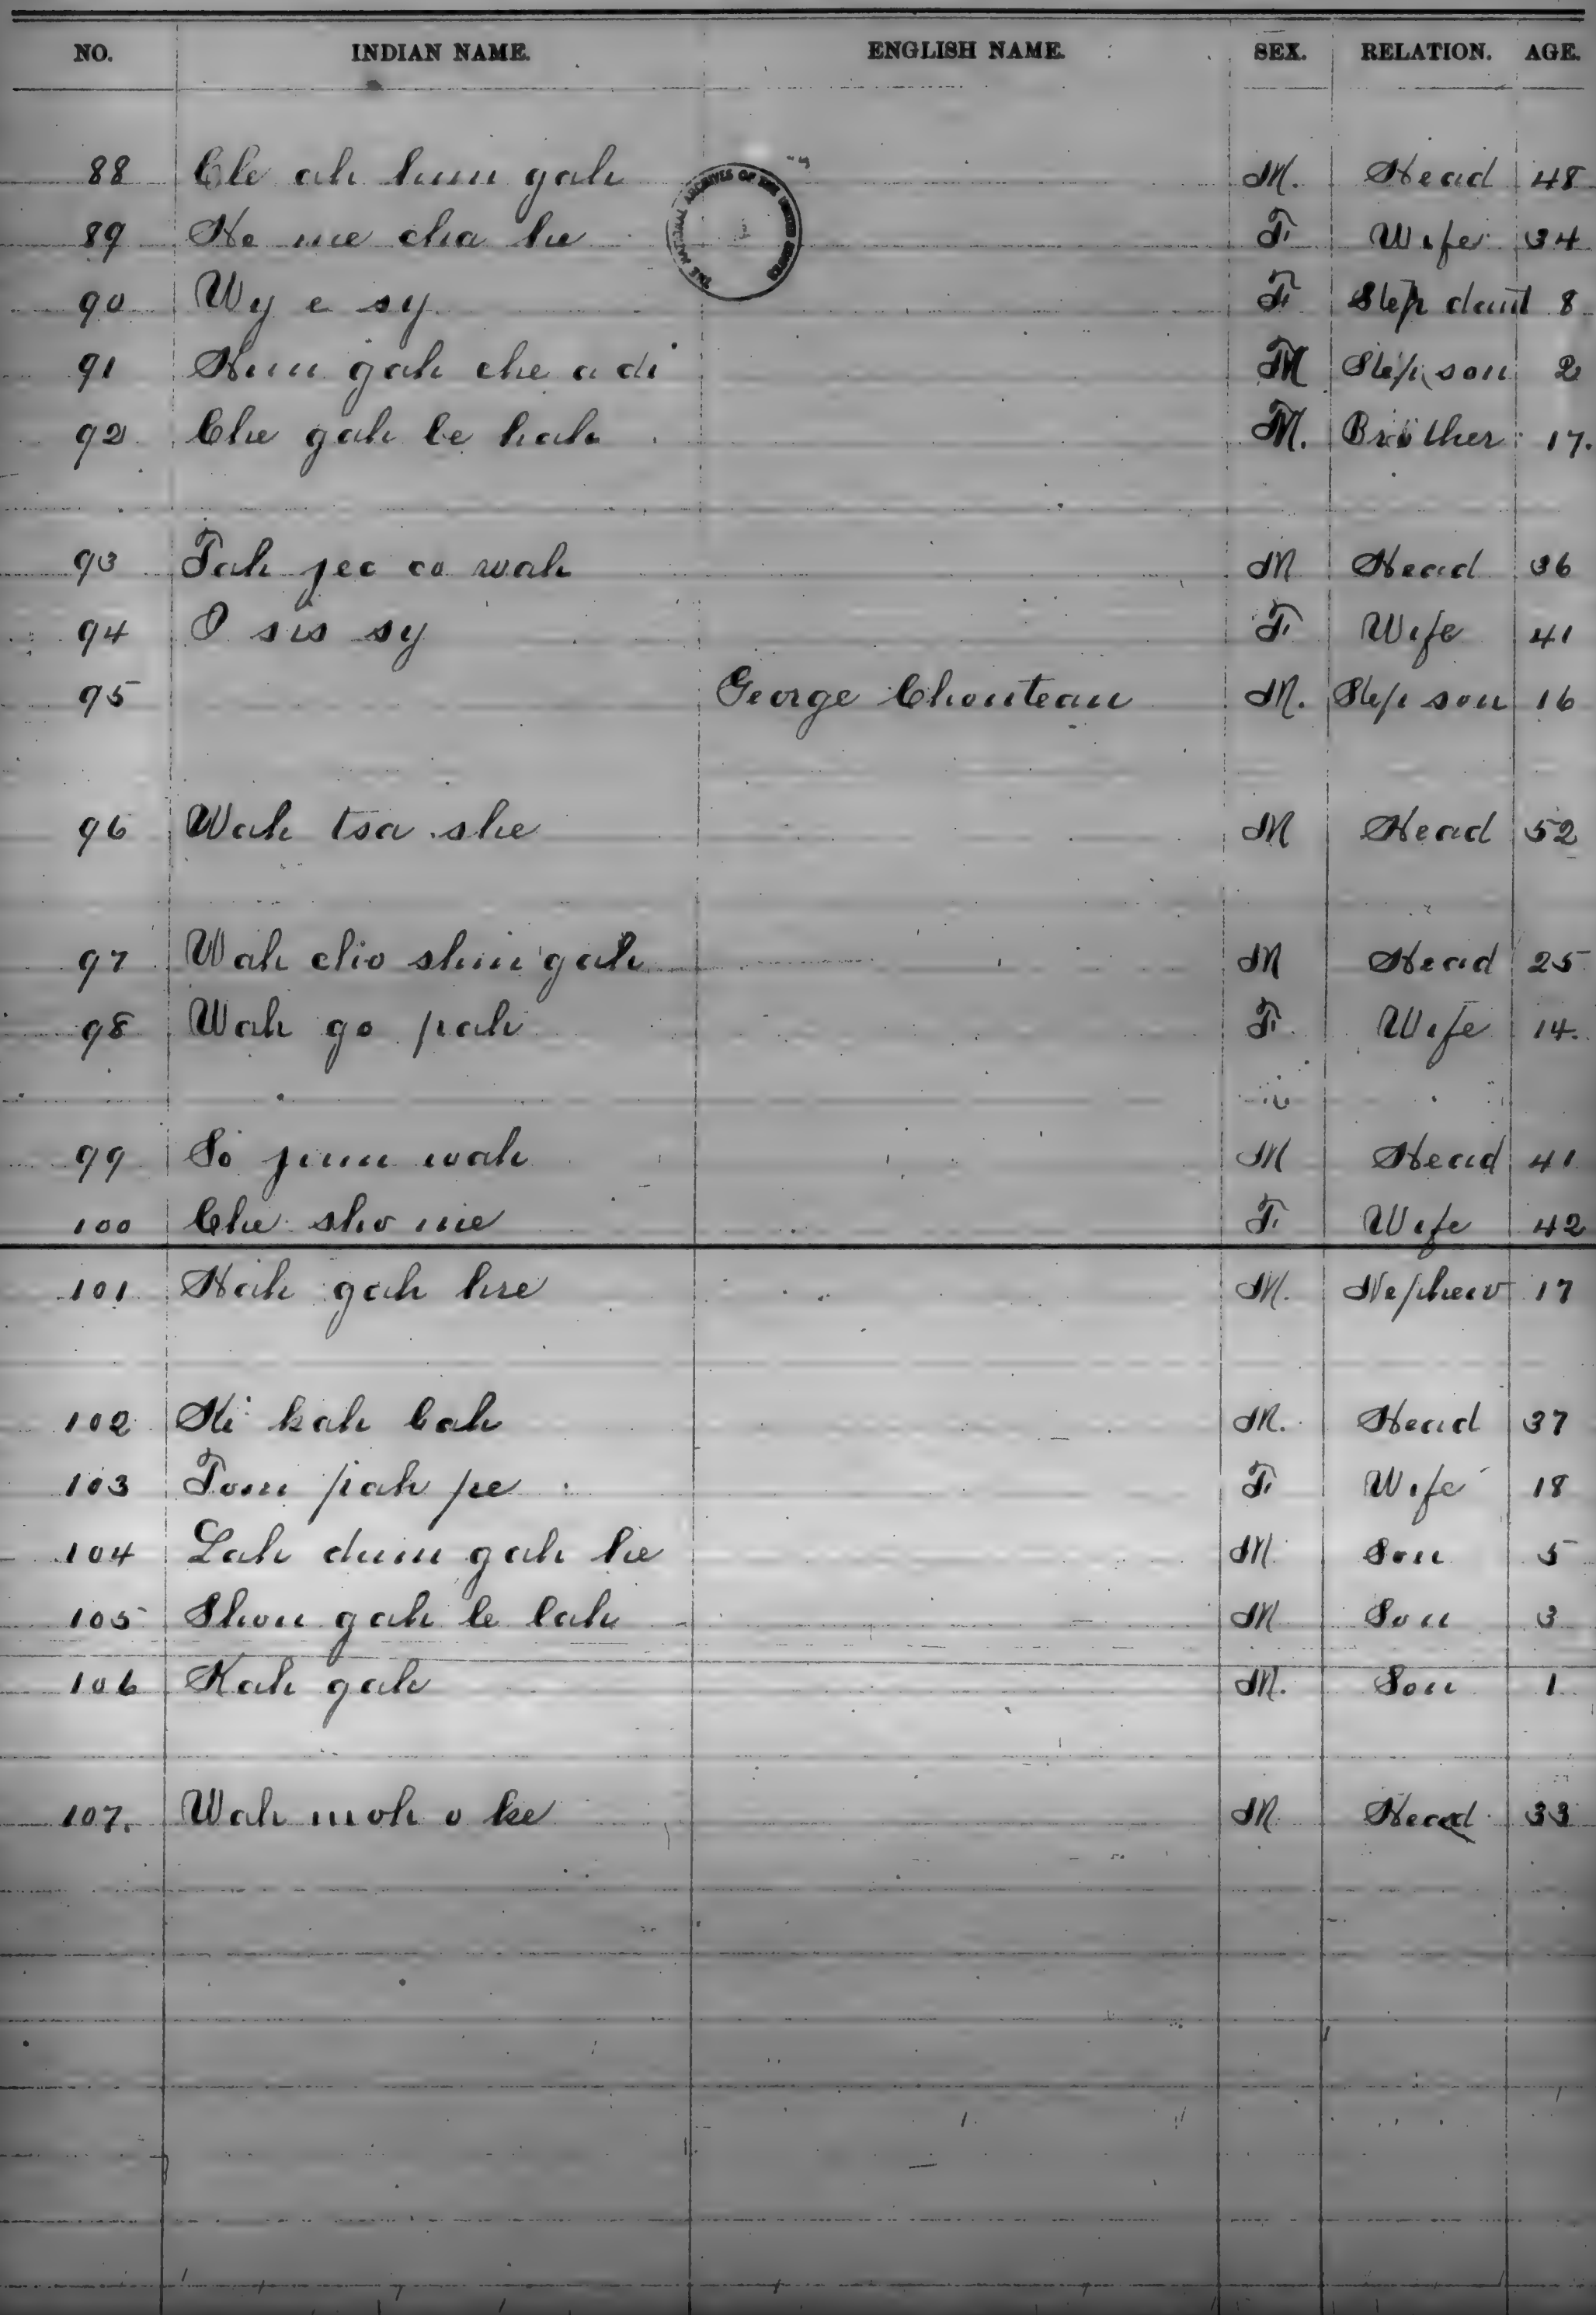 NO. INDIAN NAME. ENGLISH NAME. SEX. RELATION. AGE.
THE NATIONAL ARCHIVES OF THE UNITED STATES
88 Cle ah hum gah M. Head 48
89 He me cha he F Wife 34
90 Wy e sy F Step daut 8
91 Hum gah che a di M Step son 2
92 Che gah le hah M. Brother 17.
93 Tah jee co wah M Head 36
94 O sis sy F Wife 41
95 George Chouteau M. Step son 16
96 Wah tsa she M Head 52
97 Wah cho shin gah M Head 25
98 Wah go pah F. Wife 14.
99 So jum wah M Head 41
100 Che sho me F. Wife 42
101 Hah gah hre M. Nephew 17
102 Ki kah lah M. Head 37
103 Tom pah pe F Wife 18
104 Lah dum gah he M. Son 5
105 Shon gah le lah M Son 3
106 Kah gah M. Son 1
107. Wah moh o ke M Head 33